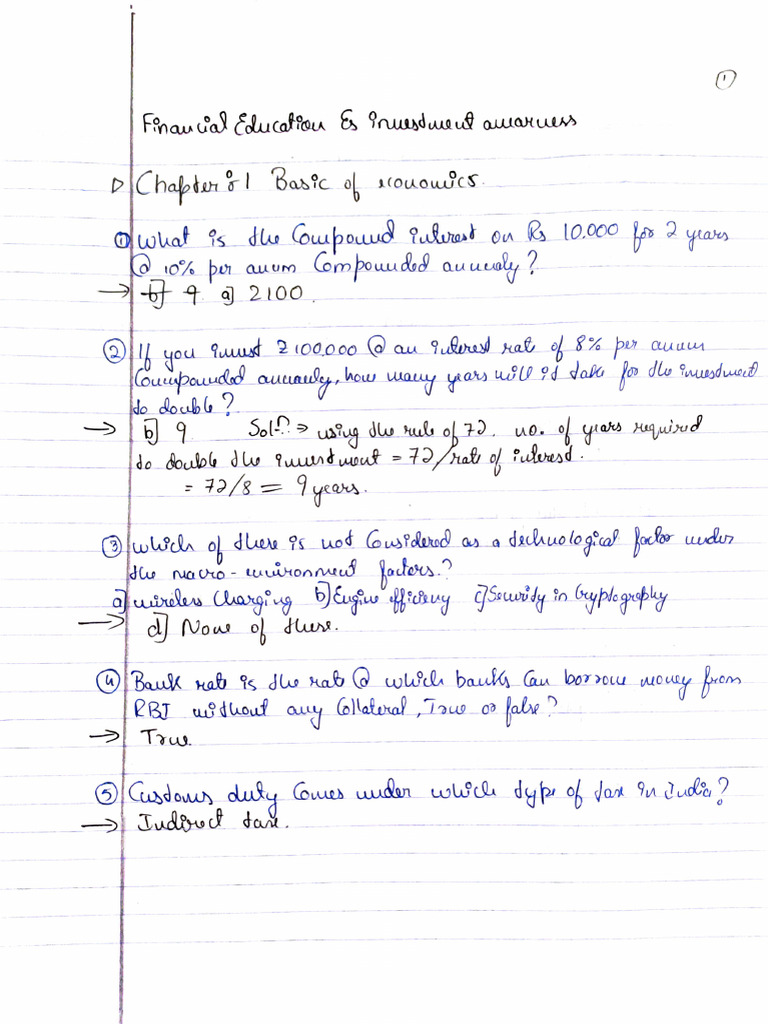 1
Financial Education & Investment awarness
Chapter:1 Basic of economics.
① What is the Compound interest on Rs 10.000 for 2 years
@ 10% per anum Compounded annualy?
→ b] 9 a] 2100.
② If you invest ₹100.000 @ an interest rate of 8% per annum
Compounded annualy, how many years will it take for the investment
to double?
→ b] 9 Solⁿ:⇒ using the rule of 72. no. of years required
to double the investment = 72/rate of interest.
= 72/8 = 9 years.
③ which of these is not Considered as a technological factor under
the macro-environment factors.?
a] wireless Charging b] Engine efficiency c] Security in Cryptography
→ d] None of these.
④ Bank rate is the rate @ which banks Can borrow money from
RBI without any Collateral, True or false?
→ True.
⑤ Customs duty Comes under which type of tax in India?
→ Indirect tax.